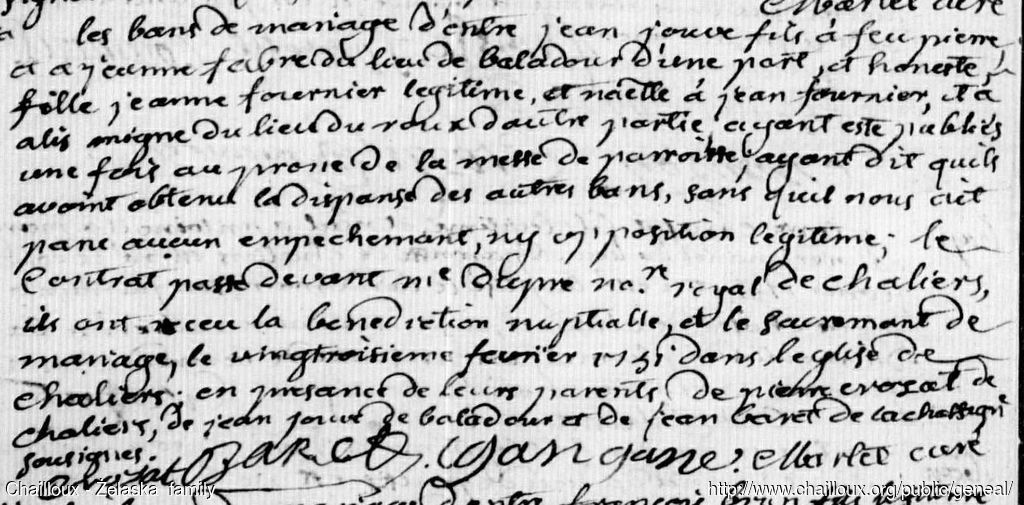 Martet curé
les bans de mariage d'entre jean jouve fils à feu pierre
et a jeanne fabre du lieu de baladour d'une part, et honeste
fille jeanne fournier legitime, et naelle à jean fournier, et a
alis migne du lieu du roux d'autre partie, ayant esté publiés
une fois au prone de la messe de parroisse, ayant dit quils
avoint obtenu la dispanse des autres bans, sans quil nous ait
paru aucun empechemant, ny opposition legitime; le
Contrat passé devant me dupre nore royal de chaliers,
ils ont receu la benediction nuptialle, et le sacremant de
mariage, le vingtroisieme fevrier 1751 dans leglise de
chaliers: en presance de leurs parents, de pierre crozat de
chaliers, de jean jouve de baladour et de jean baret de lachassagne
sousignes.
crozat BARET. Gangane. Martet curé
Chailloux - Zelaska family
http://www.chailloux.org/public/geneal/